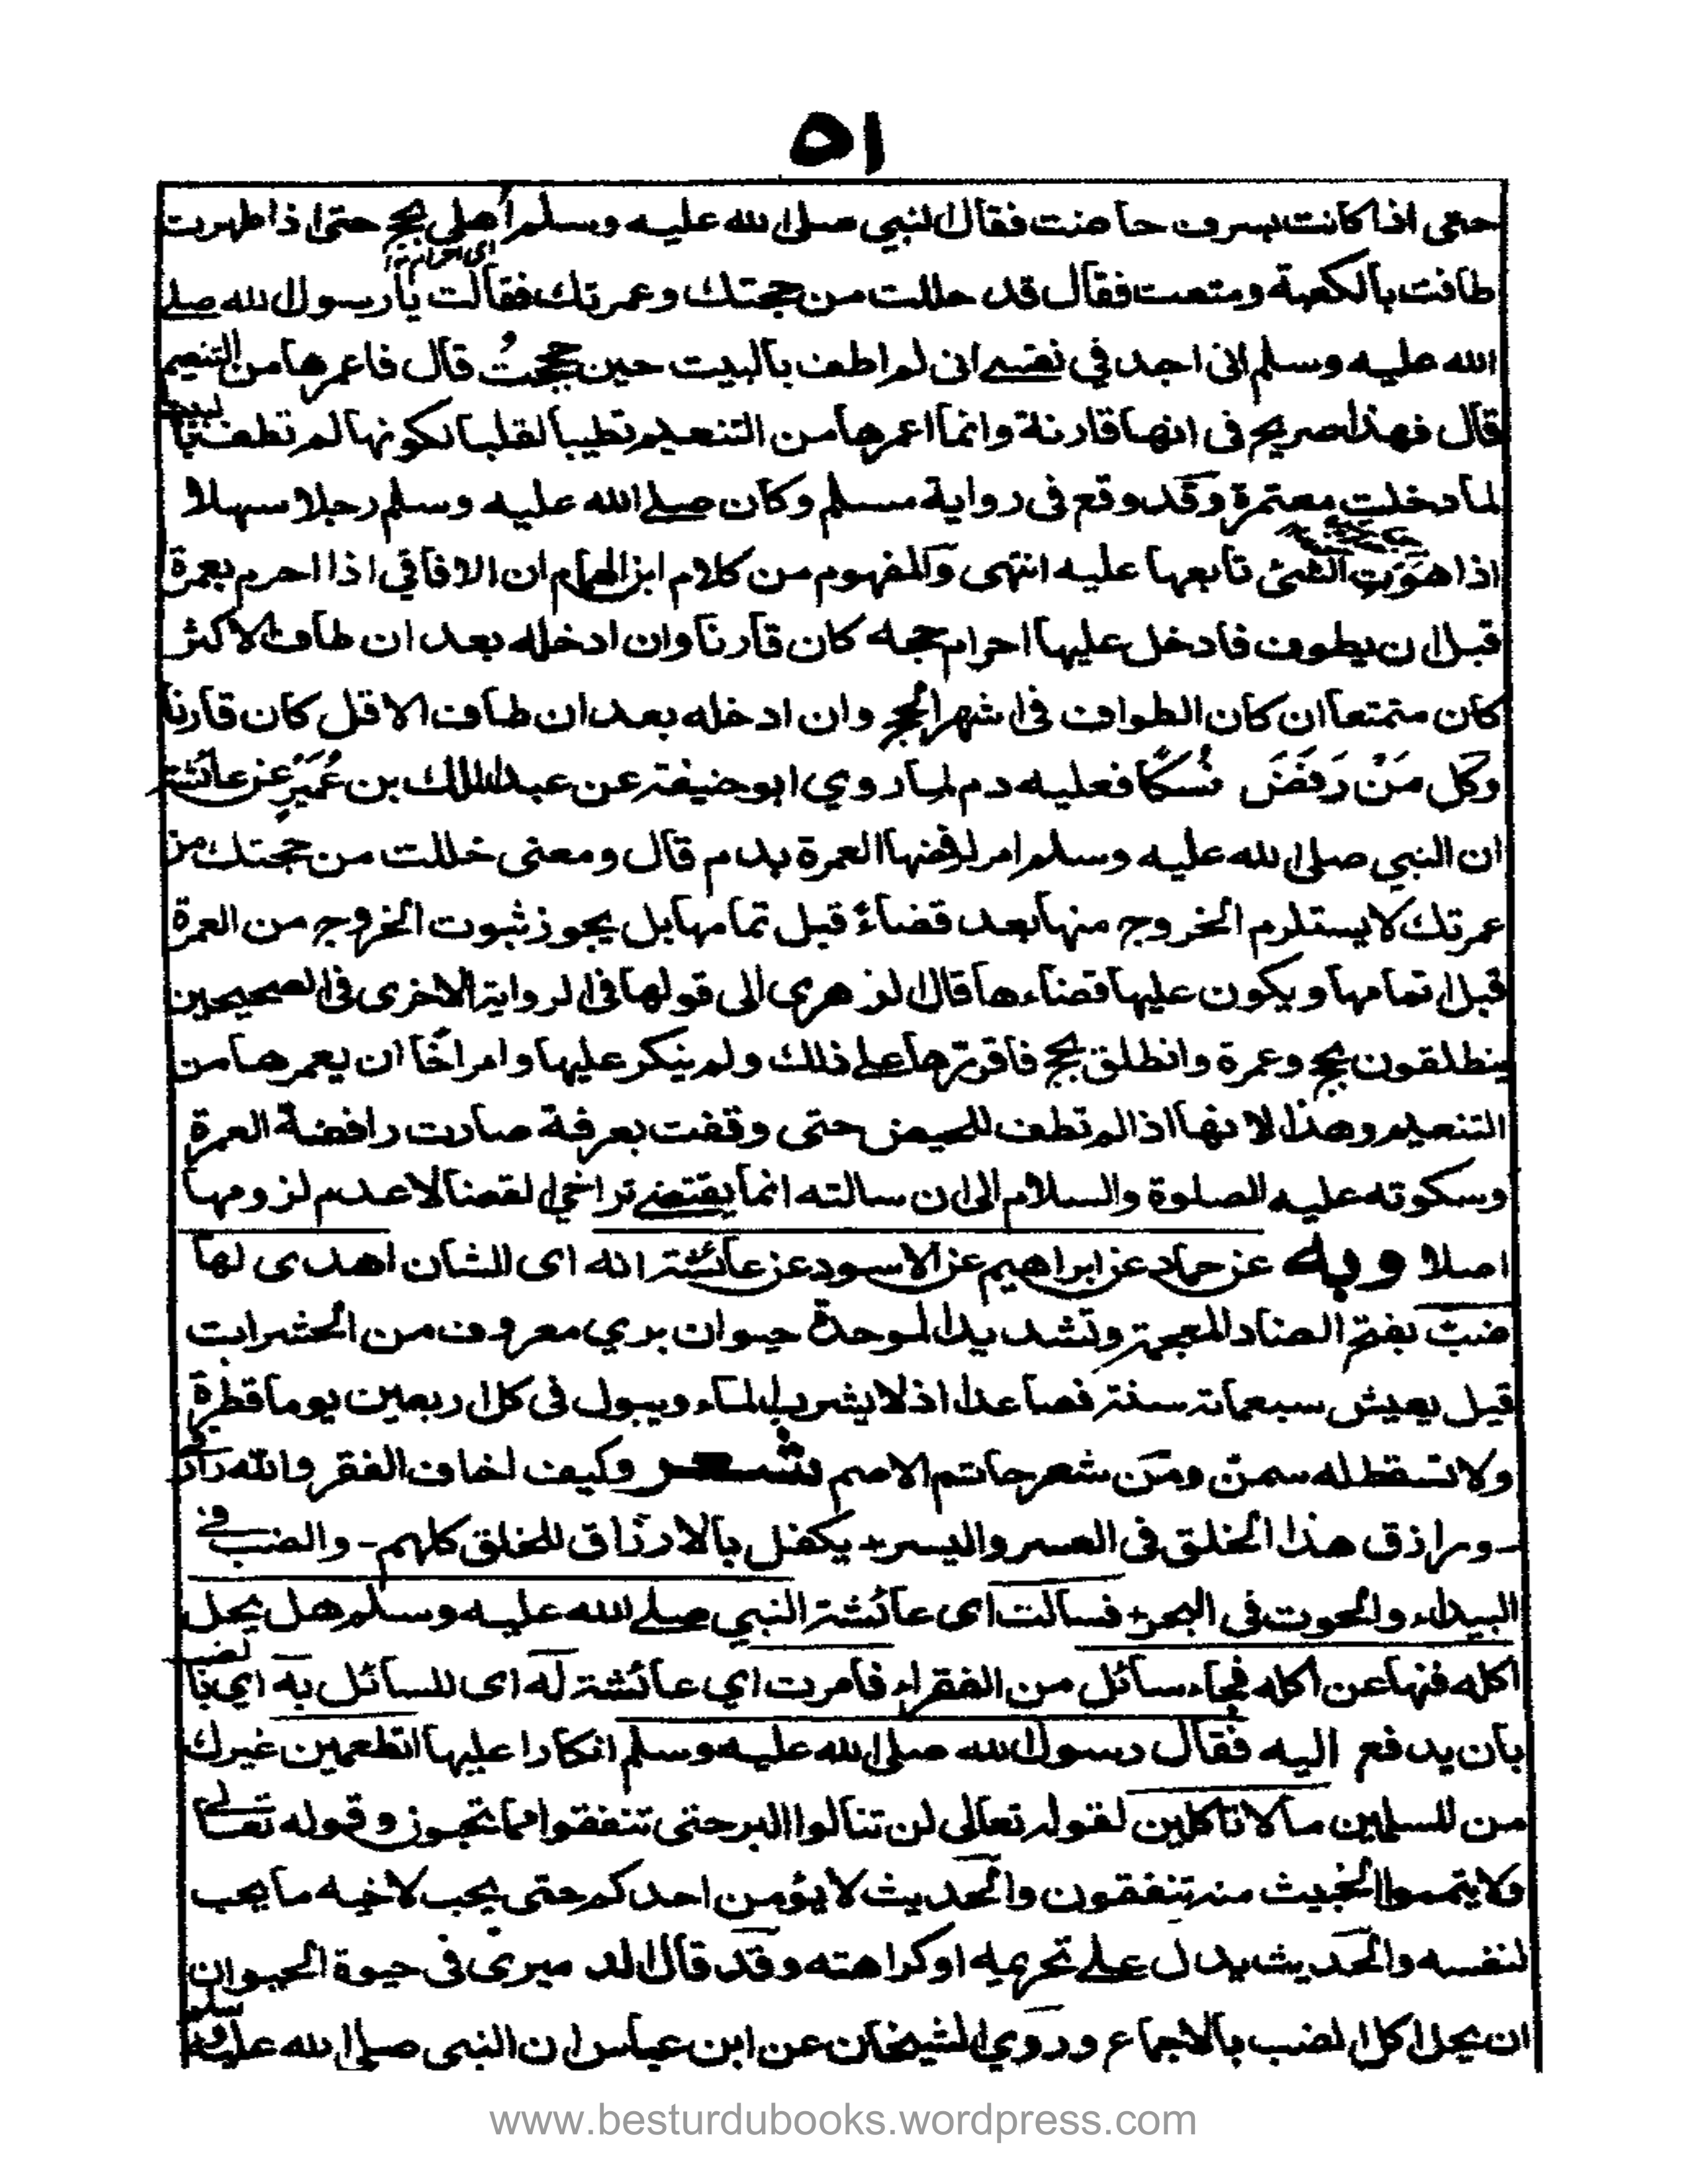 ٥١
حتى اذا كانت بسرف حاضت فقال النبي صلى الله عليه وسلم اهلي بحج حتى اذا طهرت
طافت بالكعبة وسعت فقال قد حللت من حجتك وعمرتك فقالت يا رسول الله صلے
الله عليه وسلم انى اجد في نفسے انى لم اطف بالبيت حين حججتُ قال فاعمرها من التنعيم
قال فهذا صريح فى انها قارنة وانما اعمرها من التنعيم تطيبا لقلبها لكونها لم تطف بالبيت
لما دخلت معتمرة وقد وقع فى رواية مسلم وكان صلے الله عليه وسلم رجلا سهلا
اذا هوَت الشئ تابعها عليه انتهى والمفهوم من كلام ابن الهمام ان الافاقي اذا احرم بعمرة
قبل ان يطوف فادخل عليها احرام حجه كان قارنا وان ادخله بعد ان طاف الاكثر
كان متمتعا ان كان الطواف فى اشهر الحج وان ادخله بعد ان طاف الاقل كان قارنا
وكل مَنْ رَفَضَ نُسُكًا فعليه دم لما روي ابو حنيفة عن عبد الملك بن عُمَيْرٍ عن عائشة
ان النبي صلى الله عليه وسلم امر لرفضها العمرة بدم قال ومعنى حللت من حجتك من
عمرتك لا يستلزم الخروج منها بعد قضاء قبل تمامها بل يجوز ثبوت الخروج من العمرة
قبل تمامها ويكون عليها قضاءها قال الزهري الى قولها فى الرواية الاخرى فى الصحيحين
ينطلقون بحج وعمرة وانطلق بحج فاقرّها على ذلك ولم ينكر عليها وامر اخًا ان يعمرها من
التنعيم وهذا لانها اذا لم تطف للحيض حتى وقفت بعرفة صارت رافضة العمرة
وسكوته عليه الصلوة والسلام الى ان سالته انما يقتضے تراخي القضا لا عدم لزومها
اصلا وبه عن حماد عن ابراهيم عن الاسود عن عائشة انه اى الشان اهدى لها
ضبّ بفتح الضاد المعجمة وتشديد الموحدة حيوان بري معروف من الحشرات
قيل يعيش سبعمائة سنة فصاعدا اذ لا يشرب الماء ويبول فى كل اربعين يوما قطرة
ولا تسقط له سن ومن شعر حاتم الاصم شعر وكيف اخاف الفقر والله رازق
ـ ورازق هذا الخلق فى العسر واليسر + يكفل بالارزاق للخلق كلهم - والضب في
البيداء والحوت فى البحر + فسالت اى عائشة النبي صلے الله عليه وسلم هل يحل
اكله فنهاها عن اكله فجاء سائل من الفقراء فامرت اي عائشة له اى للسائل به اي بالضب
بان يدفع اليه فقال رسول الله صلى الله عليه وسلم انكارا عليها اتطعمين غيرك
من المسلمين ما لا تاكلين لقوله تعالى لن تنالوا البر حتى تنفقوا مما تحبون وقوله تعالے
ولا تيمموا الخبيث منه تنفقون والحديث لا يؤمن احدكم حتى يحب لاخيه ما يحب
لنفسه والحديث يدل علے تحريمه او كراهته وقد قال الدميرى فى حيوة الحيوان
ان يحل اكل الضب بالاجماع وروي الشيخان عن ابن عباس ان النبى صلى الله عليه وسلم
www.besturdubooks.wordpress.com